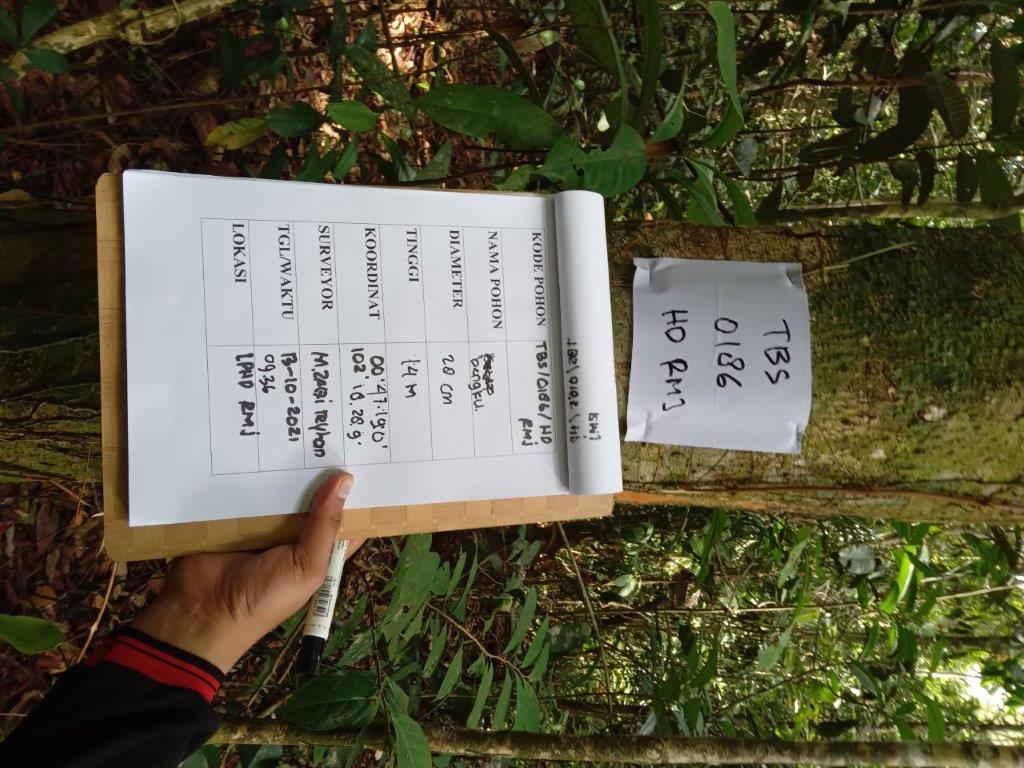 TBS
0186
HD RMJ
KODE POHON TBS/0186/HD
RMJ
NAMA POHON
bengku.
DIAMETER 28 cm
TINGGI 14 M
KOORDINAT 00°47.19.0'
102° 10.28.9.
SURVEYOR M.ZAQI reyhan
TGL/WAKTU 13-10-2021
09.36
LOKASI LPHD RMJ